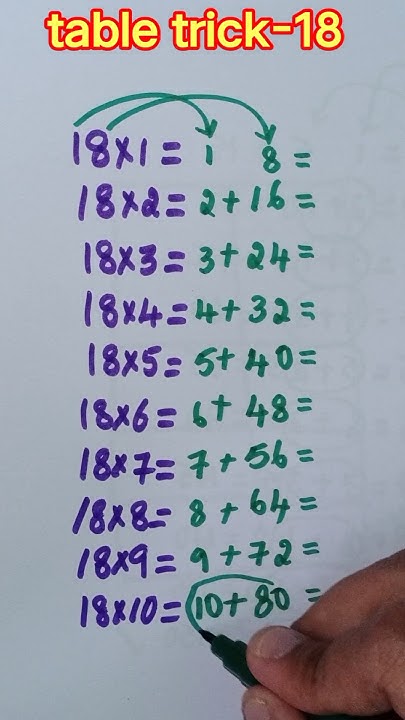 table trick-18
18×1= 1 8=
18×2= 2+16=
18×3= 3+24=
18×4= 4+32=
18×5= 5+40=
18×6= 6+48=
18×7= 7+56=
18×8= 8+64=
18×9= 9+72=
18×10= 10+80=